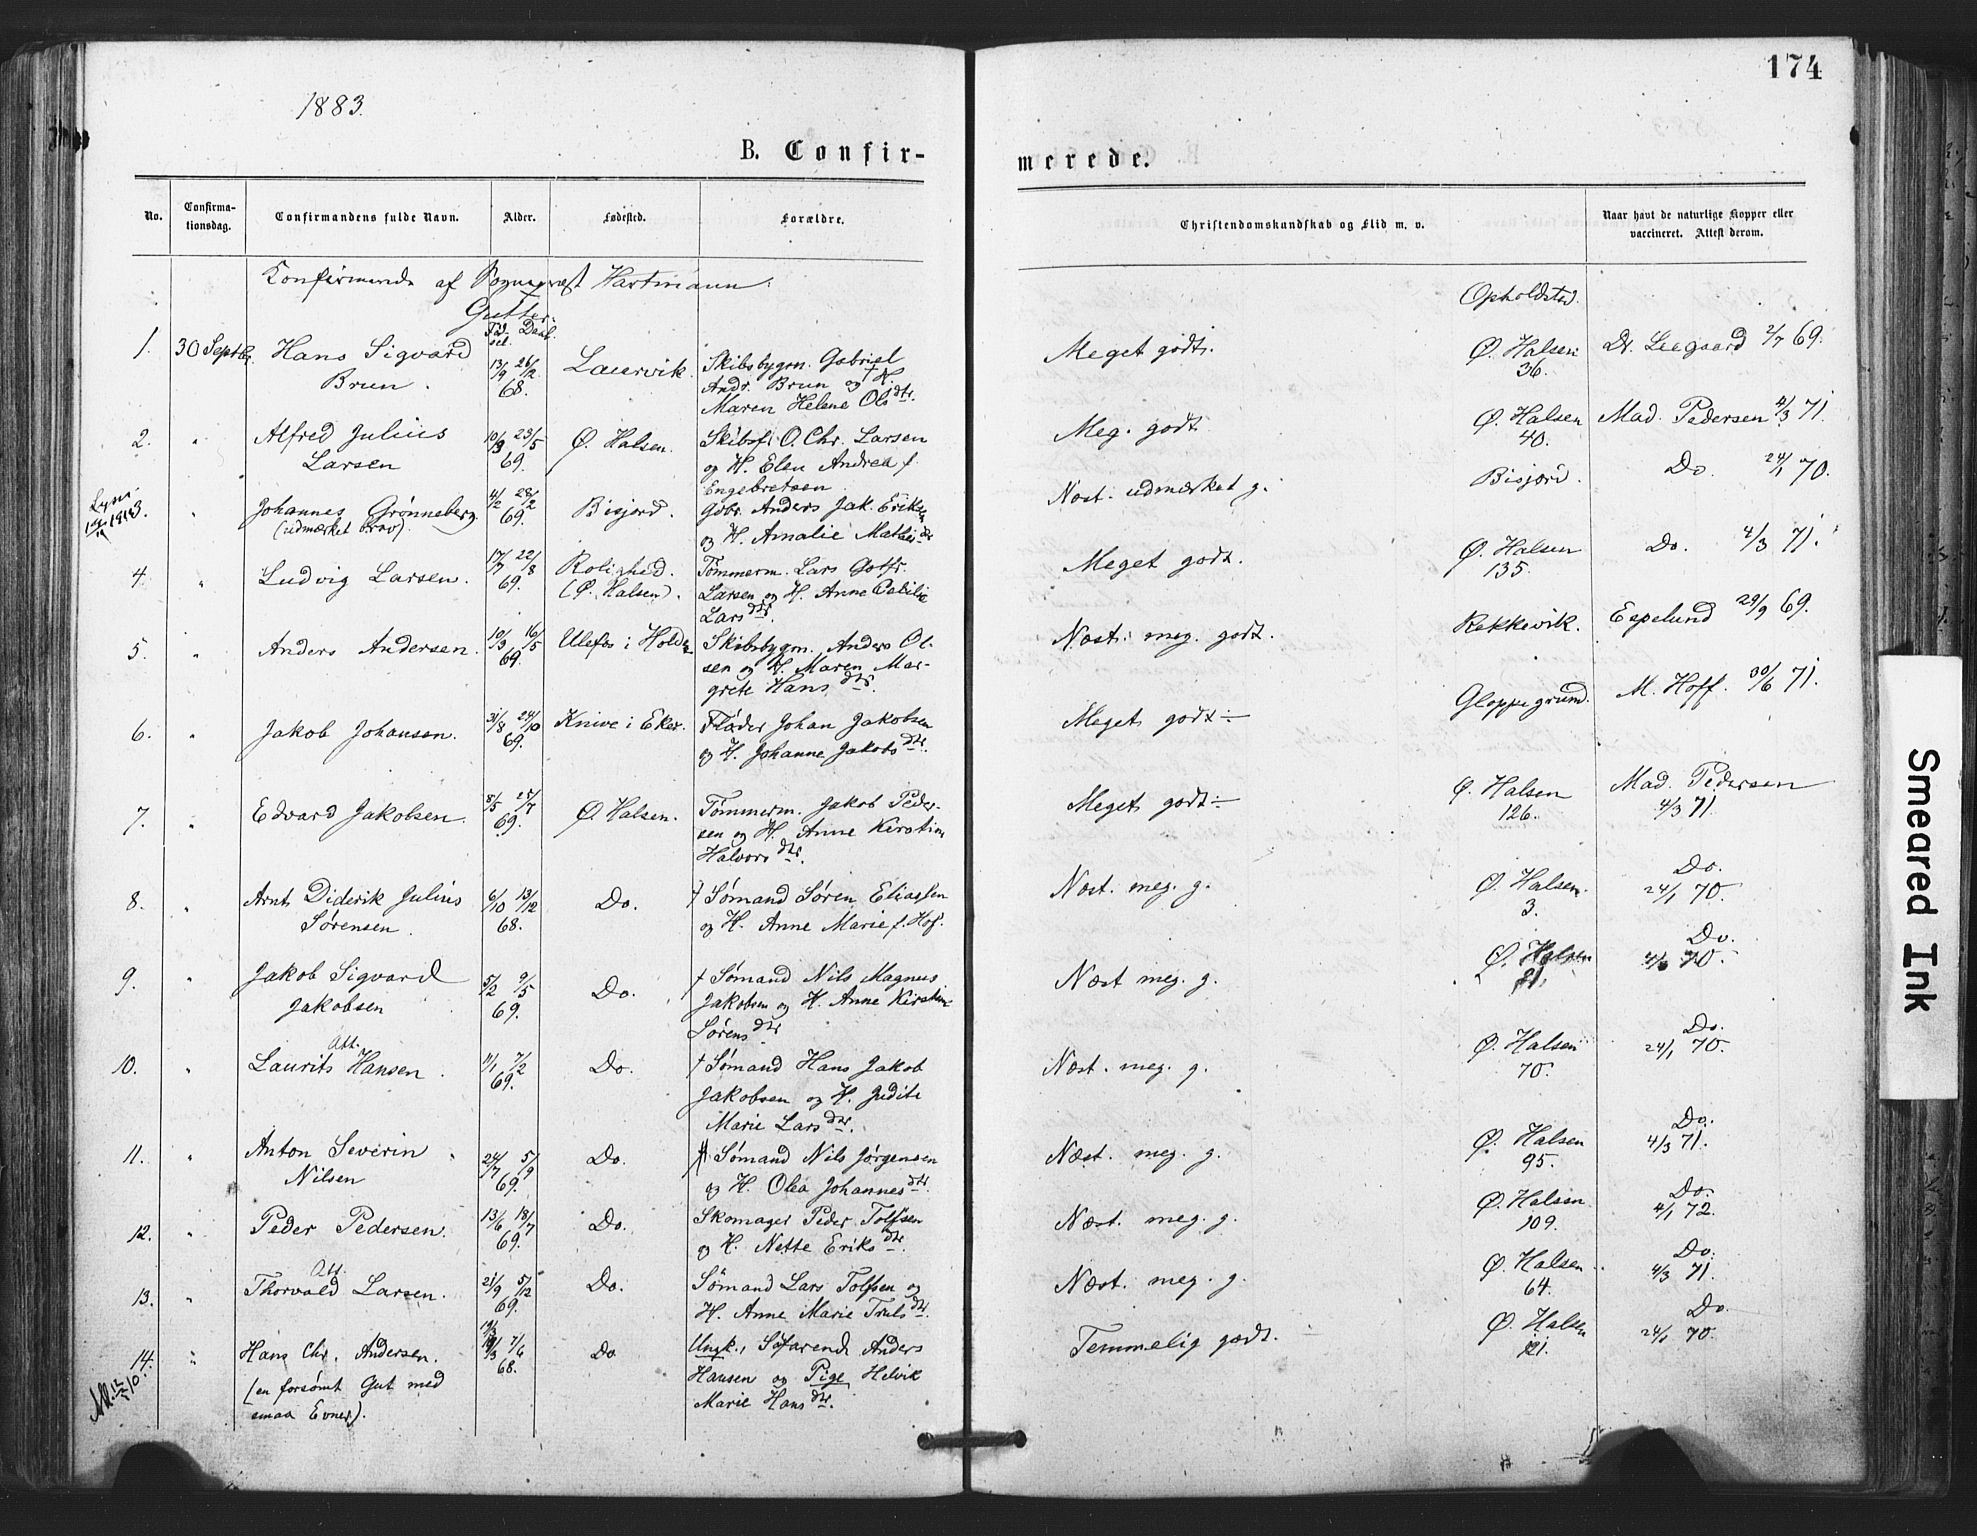 174
1883.
B. Confir-
merede.
No.
Confirma-
tionsdag.
Confirmandens fulde Navn.
Alder.
Fødested.
Forældre.
Christendomskundskab og Flid m. v.
Naar havt de naturlige Kopper eller
vaccineret. Attest derom.
Konfirmerede af Sogneprest Hartmann:
Gutter.
Opholdsted.
1. 30 Septbr Hans Sigvard
Brun.
13/9 26/12
68.
Laurvik.
Skibsbygm. Gabriel
Andr. Brun og H.
Maren Helene Olsdtr.
Meget godt.
Ø. Halsen
36.
Dr. Leegaard 2/7 69.
2. " Alfred Julius
Larsen
10/3 23/5
69.
Ø. Halsen.
Skibsf. O. Chr. Larsen
og H. Elen Andrea f.
Engebretsen
Meg. godt
Ø. Halsen
40.
Mad. Pedersen 4/3 71.
" Johannes Grønneberg
(udmærket brav).
4/2 28/2
69.
Bisjord.
Gbr. Anders Jak. Eriksen
og H. Amalie Mathisdtr
Næst. udmærket g.
Bisjord.
Do. 24/1 70.
4. " Ludvig Larsen.
17/7 22/8
69.
Rolighed.
(Ø. Halsen).
Tømmerm. Lars Gotfr.
Larsen og H. Anne Cecilie
Larsdtr.
Meget godt.
Ø. Halsen
135.
Do. 4/3 71.
5. " Anders Andersen.
10/3 16/5
69.
Ulefos i Holden
Skibsbygm. Anders Ol-
sen og H. Maren Mar-
grete Hansdtr.
Næst. meg. godt.
Rekkevik.
Espelund 29/9 69.
6. " Jakob Johansen.
31/8 24/10
69.
Knive i Eker.
Fløder Johan Jakobsen
og H. Johanne Jakobsdtr.
Meget godt.
Gloppegrund.
M. Hoff. 30/6 71.
7. " Edvard Jakobsen.
8/5 25/7
69.
Ø. Halsen.
Tømmerm. Jakob Peder-
sen og H. Anne Kirstine
Halvorsdtr.
Meget godt
Ø. Halsen
126.
Mad. Pedersen
4/3 71.
8. " Arnt Diderik Julius
Sørensen.
6/10 13/12
68.
Do.
† Sømand Søren Eliassen
og H. Anne Marie f. Hof.
Næst. meg. g.
Ø. Halsen.
3.
Do.
24/1 70.
9. " Jakob Sigvard
Jakobsen
5/2 9/5
69.
Do.
† Sømand Nils Magnus
Jakobsen og H. Anne Kirstine
Sørensdtr
Næst meg. g.
Ø. Halsen
Do.
70.
10. " Att.
Laurits Hansen.
11/1 7/2
69.
Do.
† Sømand Hans Jakob
Jakobsen og H. Judite
Marie Larsdtr.
Næst. meg. g.
Ø. Halsen
70.
Do.
24/1 70.
11. " Anton Severin
Nilsen
24/7 5/9
69.
Do.
Sømand Nils Jørgensen
og H. Olea Johannesdtr.
Næst. meg. g.
Ø. Halsen
95.
Do.
4/3 71.
12. " Peder Pedersen.
13/6 18/7
69.
Do.
Skomager Peder Tolfsen
og H. Nette Eriksdtr.
Næst. meg. g.
Ø. Halsen
109.
Do.
4/1 72.
13. " Att.
Thorvald Larsen.
21/9 5/12
69.
Do.
Sømand Lars Tolfsen og
H. Anne Marie Trulsdtr.
Næst. meg. g.
Ø. Halsen.
64.
Do.
4/3 71.
14. " Hans Chr. Andersen.
(en forsømt Gut med
smaa Evner).
7/6
68.
Do
Ungk., Søfarende Anders
Hansen og Pige Helvik
Marie Hansdtr.
Temmelig godt.
Ø. Halsen
121.
Do.
24/1 70.
Smeared Ink